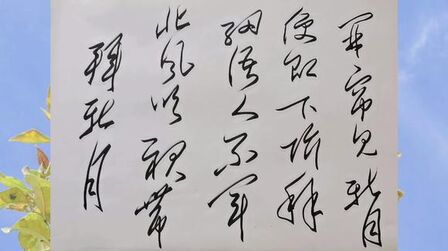 开帘见新月
便即下阶拜
细语人不闻
北风吹裙带
拜新月